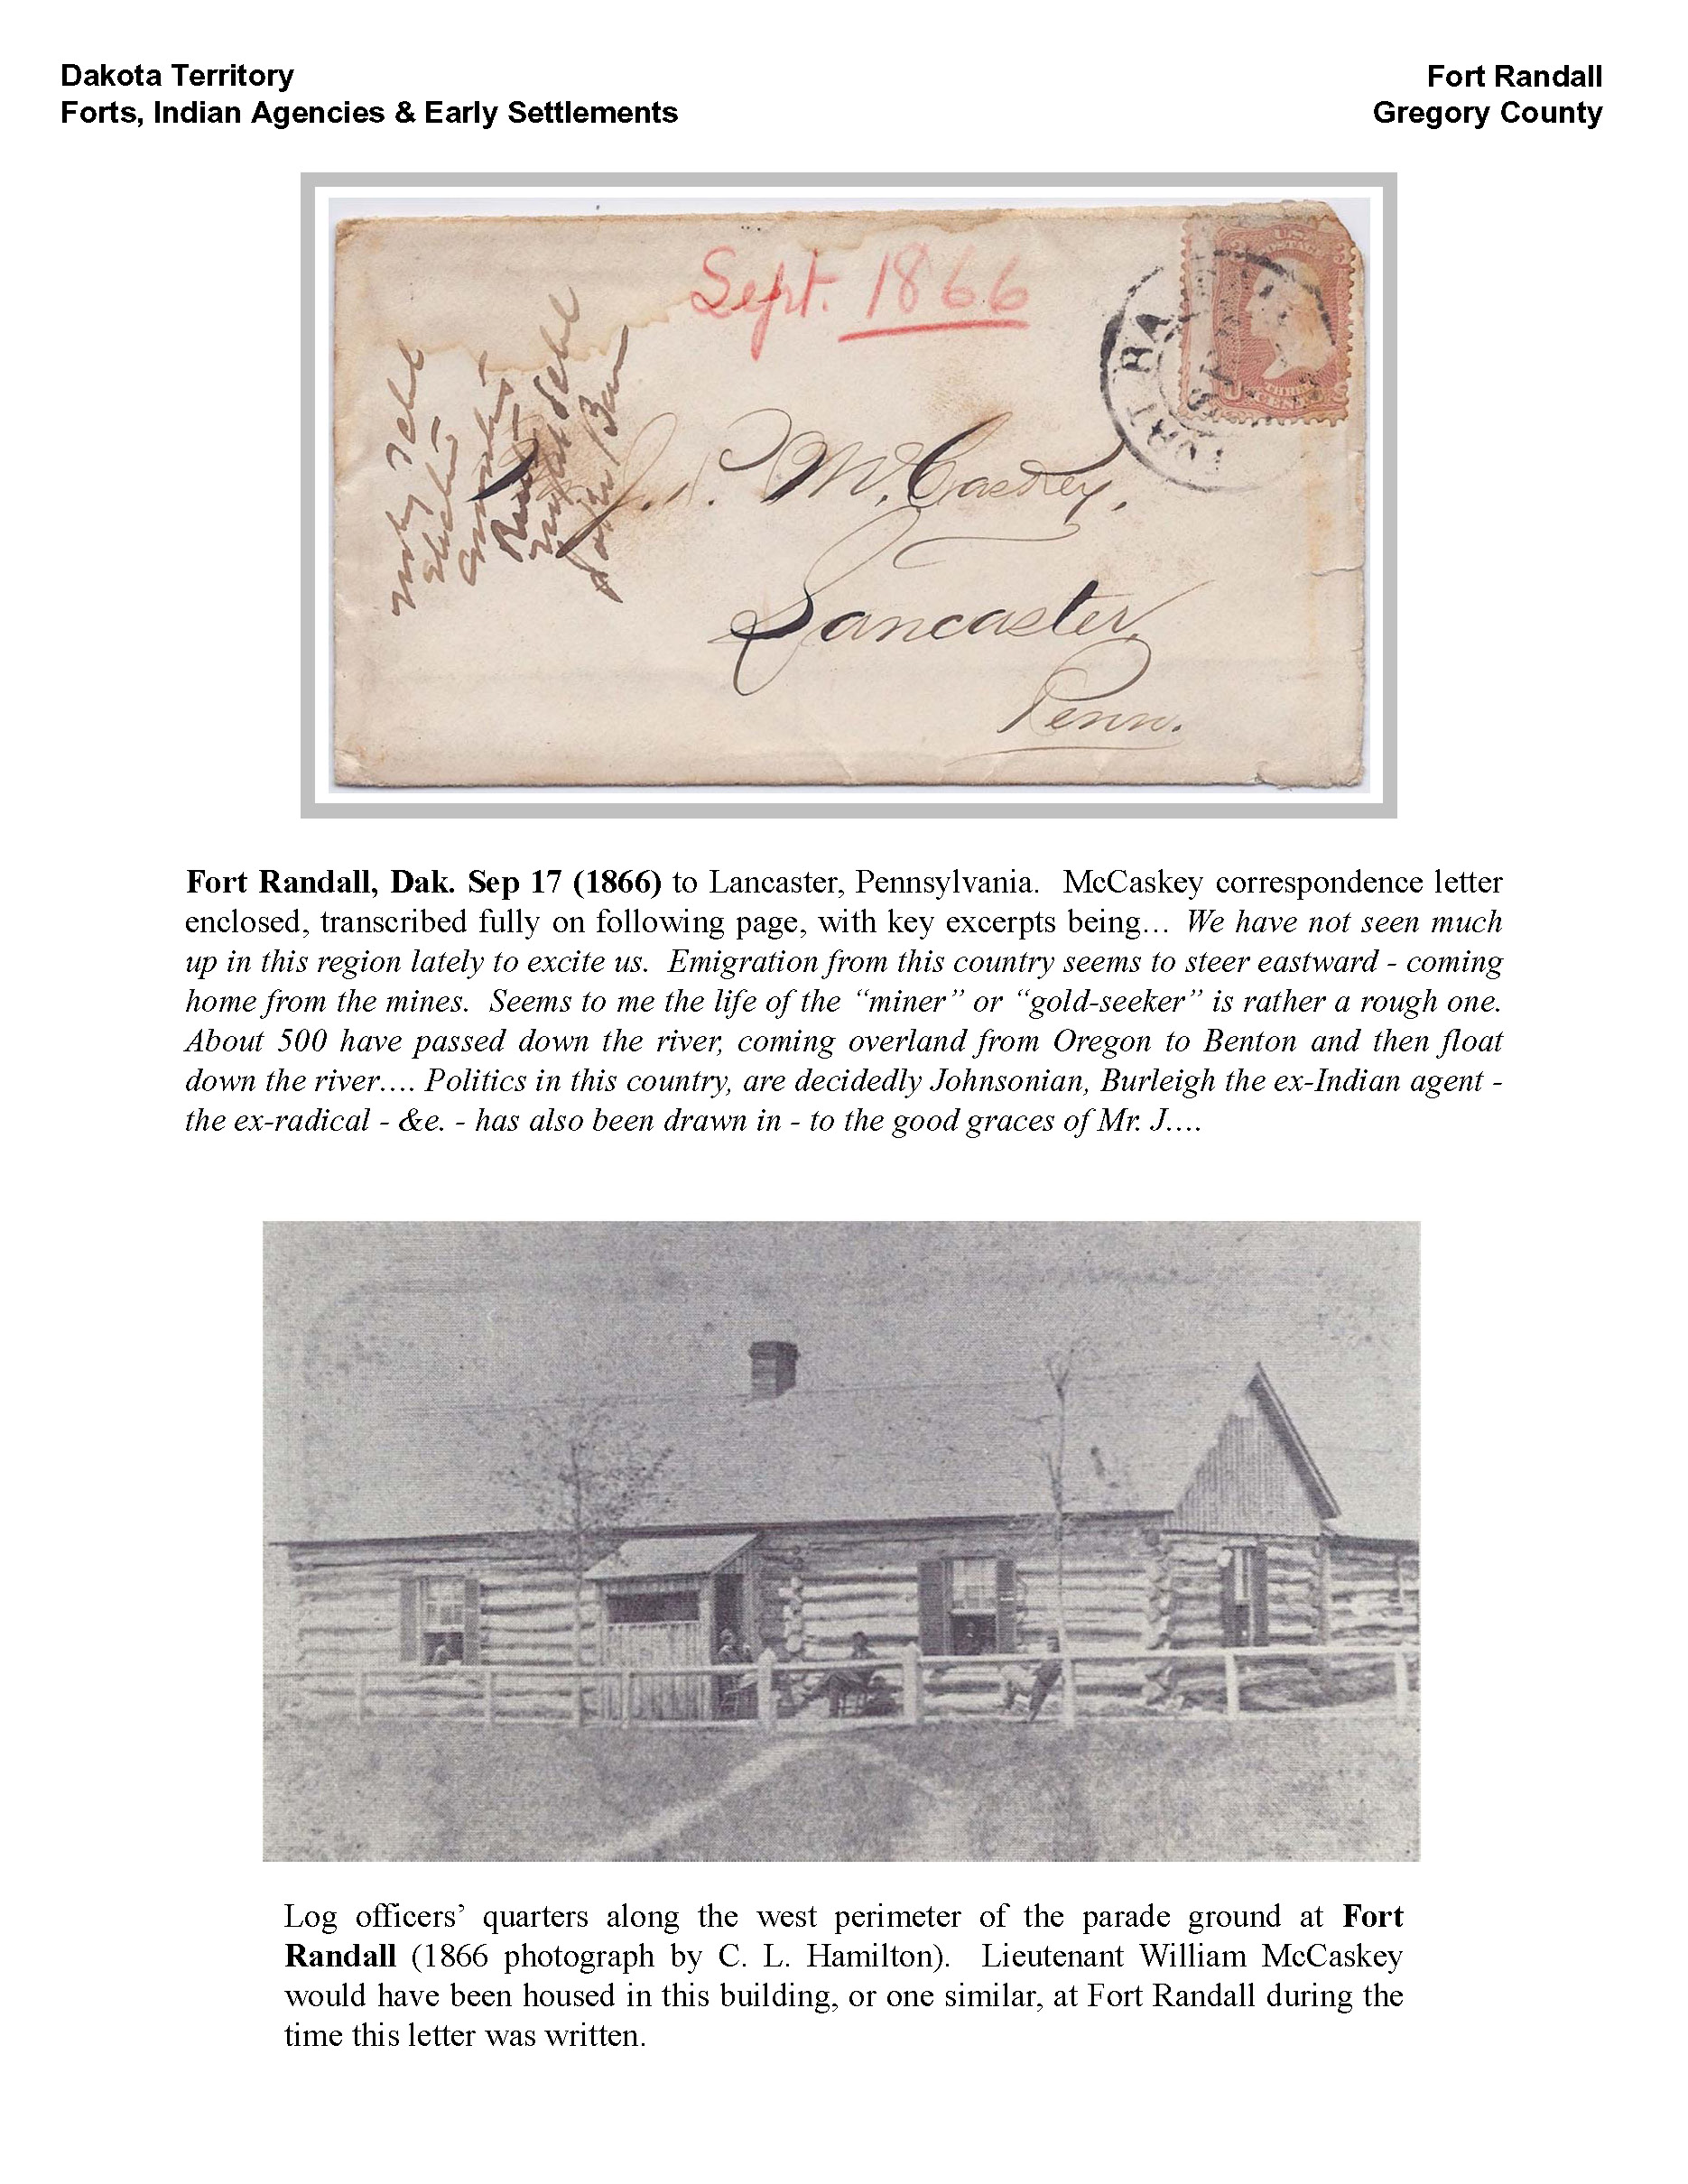 Dakota Territory
Forts, Indian Agencies & Early Settlements
Fort Randall
Gregory County
Sept. 1866
U.S. POSTAGE
3 3
THREE CENTS
FORT RA
J. P. McCaskey,
Lancaster,
Penn.
Fort Randall, Dak. Sep 17 (1866) to Lancaster, Pennsylvania. McCaskey correspondence letter
enclosed, transcribed fully on following page, with key excerpts being… We have not seen much
up in this region lately to excite us. Emigration from this country seems to steer eastward - coming
home from the mines. Seems to me the life of the “miner” or “gold-seeker” is rather a rough one.
About 500 have passed down the river, coming overland from Oregon to Benton and then float
down the river…. Politics in this country, are decidedly Johnsonian, Burleigh the ex-Indian agent -
the ex-radical - &e. - has also been drawn in - to the good graces of Mr. J….
Log officers’ quarters along the west perimeter of the parade ground at Fort
Randall (1866 photograph by C. L. Hamilton). Lieutenant William McCaskey
would have been housed in this building, or one similar, at Fort Randall during the
time this letter was written.